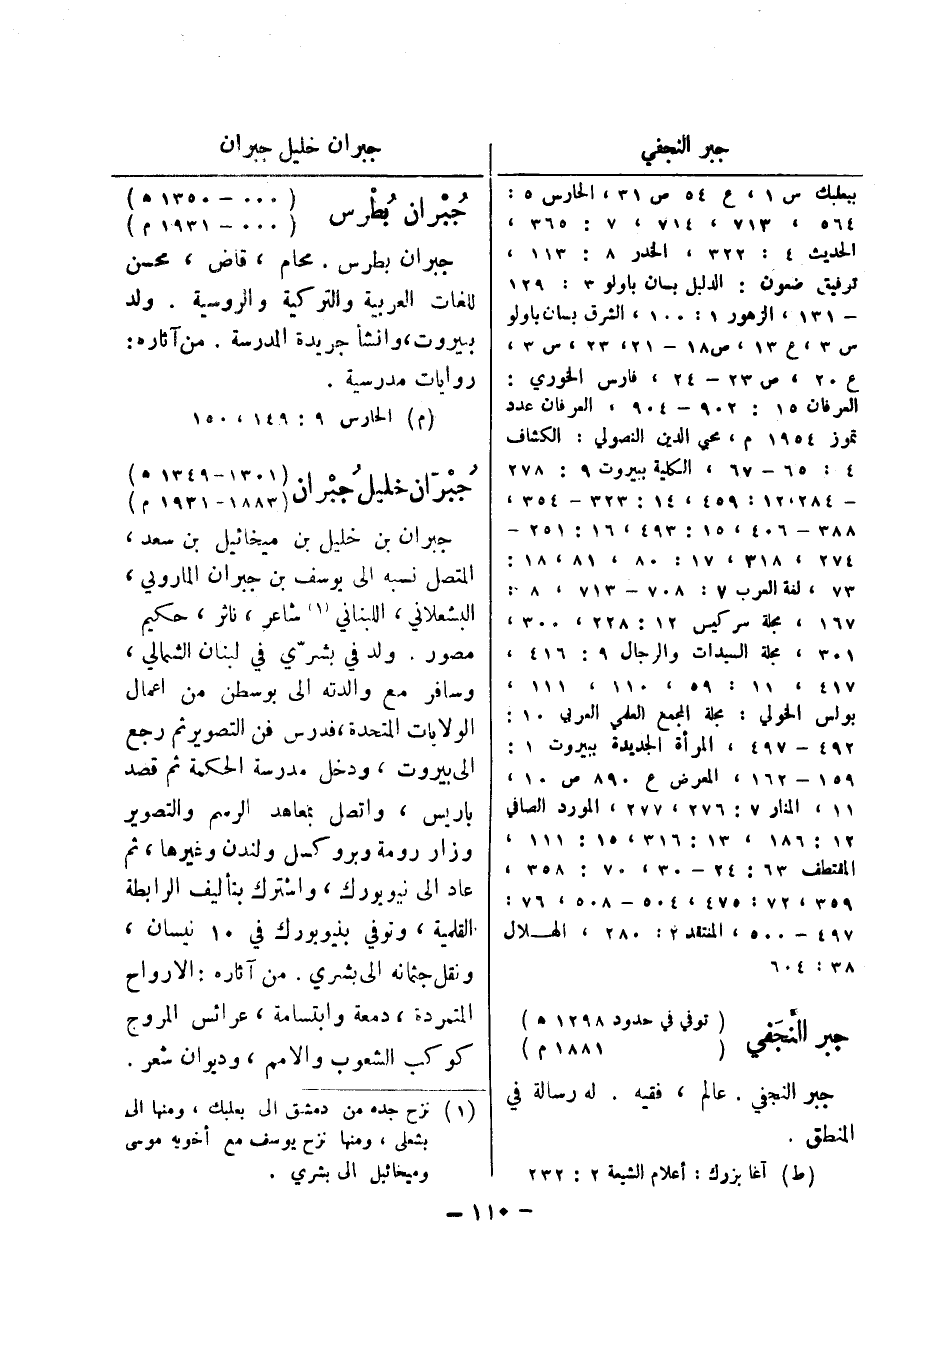 جبر النجفي
ببعلبك س ١ ، ع ٥٤ ص ٣١ ، الحارس ٥ :
٥٦٤ ، ٧١٣ ، ٧١٤ ، ٧ : ٣٦٥ ،
الحديث ٤ : ٣٢٢ ، الخدر ٨ : ١١٣ ،
توفيق ضعون : الدليل بسان باولو ٣ : ١٢٩
– ١٣١ ، الزهور ١ : ١٠٠ ، الشرق بسان باولو
س ٣ ، ع ١٣ ، ص ١٨ – ٢١ ، ٢٣ ، س ٣ ،
ع ٢٠ ، ص ٢٣ – ٢٤ ، فارس الخوري :
العرفان ١٥ : ٩٠٢ – ٩٠٤ ، العرفان عدد
تموز ١٩٥٤ م ، محي الدين النصولي : الكشاف
٤ : ٦٥ – ٦٧ ، الكلية ببيروت ٩ : ٢٧٨
– ٢٨٤ ، ١٢ : ٤٥٩ ، ١٤ : ٣٢٣ – ٣٥٤ ،
٣٨٨ – ٤٠٦ ، ١٥ : ٤٩٣ ، ١٦ : ٢٥١ –
٢٧٤ ، ٣١٨ ، ١٧ : ٨٠ ، ٨١ ، ١٨ :
٧٣ ، لغة العرب ٧ : ٧٠٨ – ٧١٣ ، ٨ :
١٦٧ ، مجلة سركيس ١٢ : ٢٢٨ ، ٣٠٠ ،
٣٠١ ، مجلة السيدات والرجال ٩ : ٤١٦ ،
٤١٧ ، ١١ : ٥٩ ، ١١٠ ، ١١١ ،
بولس الخولي : مجلة المجمع العلمي العربي ١٠ :
٤٩٢ – ٤٩٧ ، المرأة الجديدة ببيروت ١ :
١٥٩ – ١٦٢ ، المعرض ع ٨٩٠ ص ١٠ ،
١١ ، المنار ٧ : ٢٧٦ ، ٢٧٧ ، المورد الصافي
١٢ : ١٨٦ ، ١٣ : ٣١٦ ، ١٥ : ١١١ ،
المقتطف ٦٣ : ٢٤ – ٣٠ ، ٧٠ : ٣٥٨ ،
٣٥٩ ، ٧٢ : ٤٧٥ ، ٥٠٤ – ٥٠٨ ، ٧٦ :
٤٩٧ – ٥٠٠ ، المنتقد ٢ : ٢٨٠ ، الهلال
٣٨ : ٦٠٤
جبر النَّجَفي ( توفي في حدود ١٢٩٨ ه )
( ١٨٨١ م )
جبر النجفي . عالم ، فقيه . له رسالة في
المنطق .
(ط) آغا بزرك : أعلام الشيعة ٢ : ٢٣٢
جبران خليل جبران
جُبْران بُطْرس ( ٠٠٠ – ١٣٥٠ ه )
( ٠٠٠ – ١٩٣١ م )
جبران بطرس . محام ، قاض ، محسن
للغات العربية والتركية والروسية . ولد
ببيروت ، وانشأ جريدة المدرسة . من آثاره :
روايات مدرسية .
(م) الحارس ٩ : ١٤٩ ، ١٥٠
جُبْرَان خليل جُبْران (١٣٠١–١٣٤٩ ه )
(١٨٨٣–١٩٣١ م )
جبران بن خليل بن ميخائيل بن سعد ،
المتصل نسبه الى يوسف بن جبران الماروني ،
البشعلاني ، اللبناني (١) شاعر ، ناثر ، حكيم
مصور . ولد في بشرّي في لبنان الشمالي ،
وسافر مع والدته الى بوسطن من اعمال
الولايات المتحدة ، فدرس فن التصوير ثم رجع
الى بيروت ، ودخل مدرسة الحكمة ثم قصد
باريس ، واتصل بمعاهد الرسم والتصوير
وزار رومة وبروكسل ولندن وغيرها ، ثم
عاد الى نيويورك ، واشترك بتأليف الرابطة
القلمية ، وتوفي بنيويورك في ١٠ نيسان ،
ونقل جثمانه الى بشري . من آثاره : الارواح
المتمردة ، دمعة وابتسامة ، عرائس المروج
كوكب الشعوب والامم ، وديوان شعر .
(١) نزح جده من دمشق الى بعلبك ، ومنها الى
بشعلى ، ومنها نزح يوسف مع أخويه موسى
وميخائيل الى بشري .
– ١١٠ –